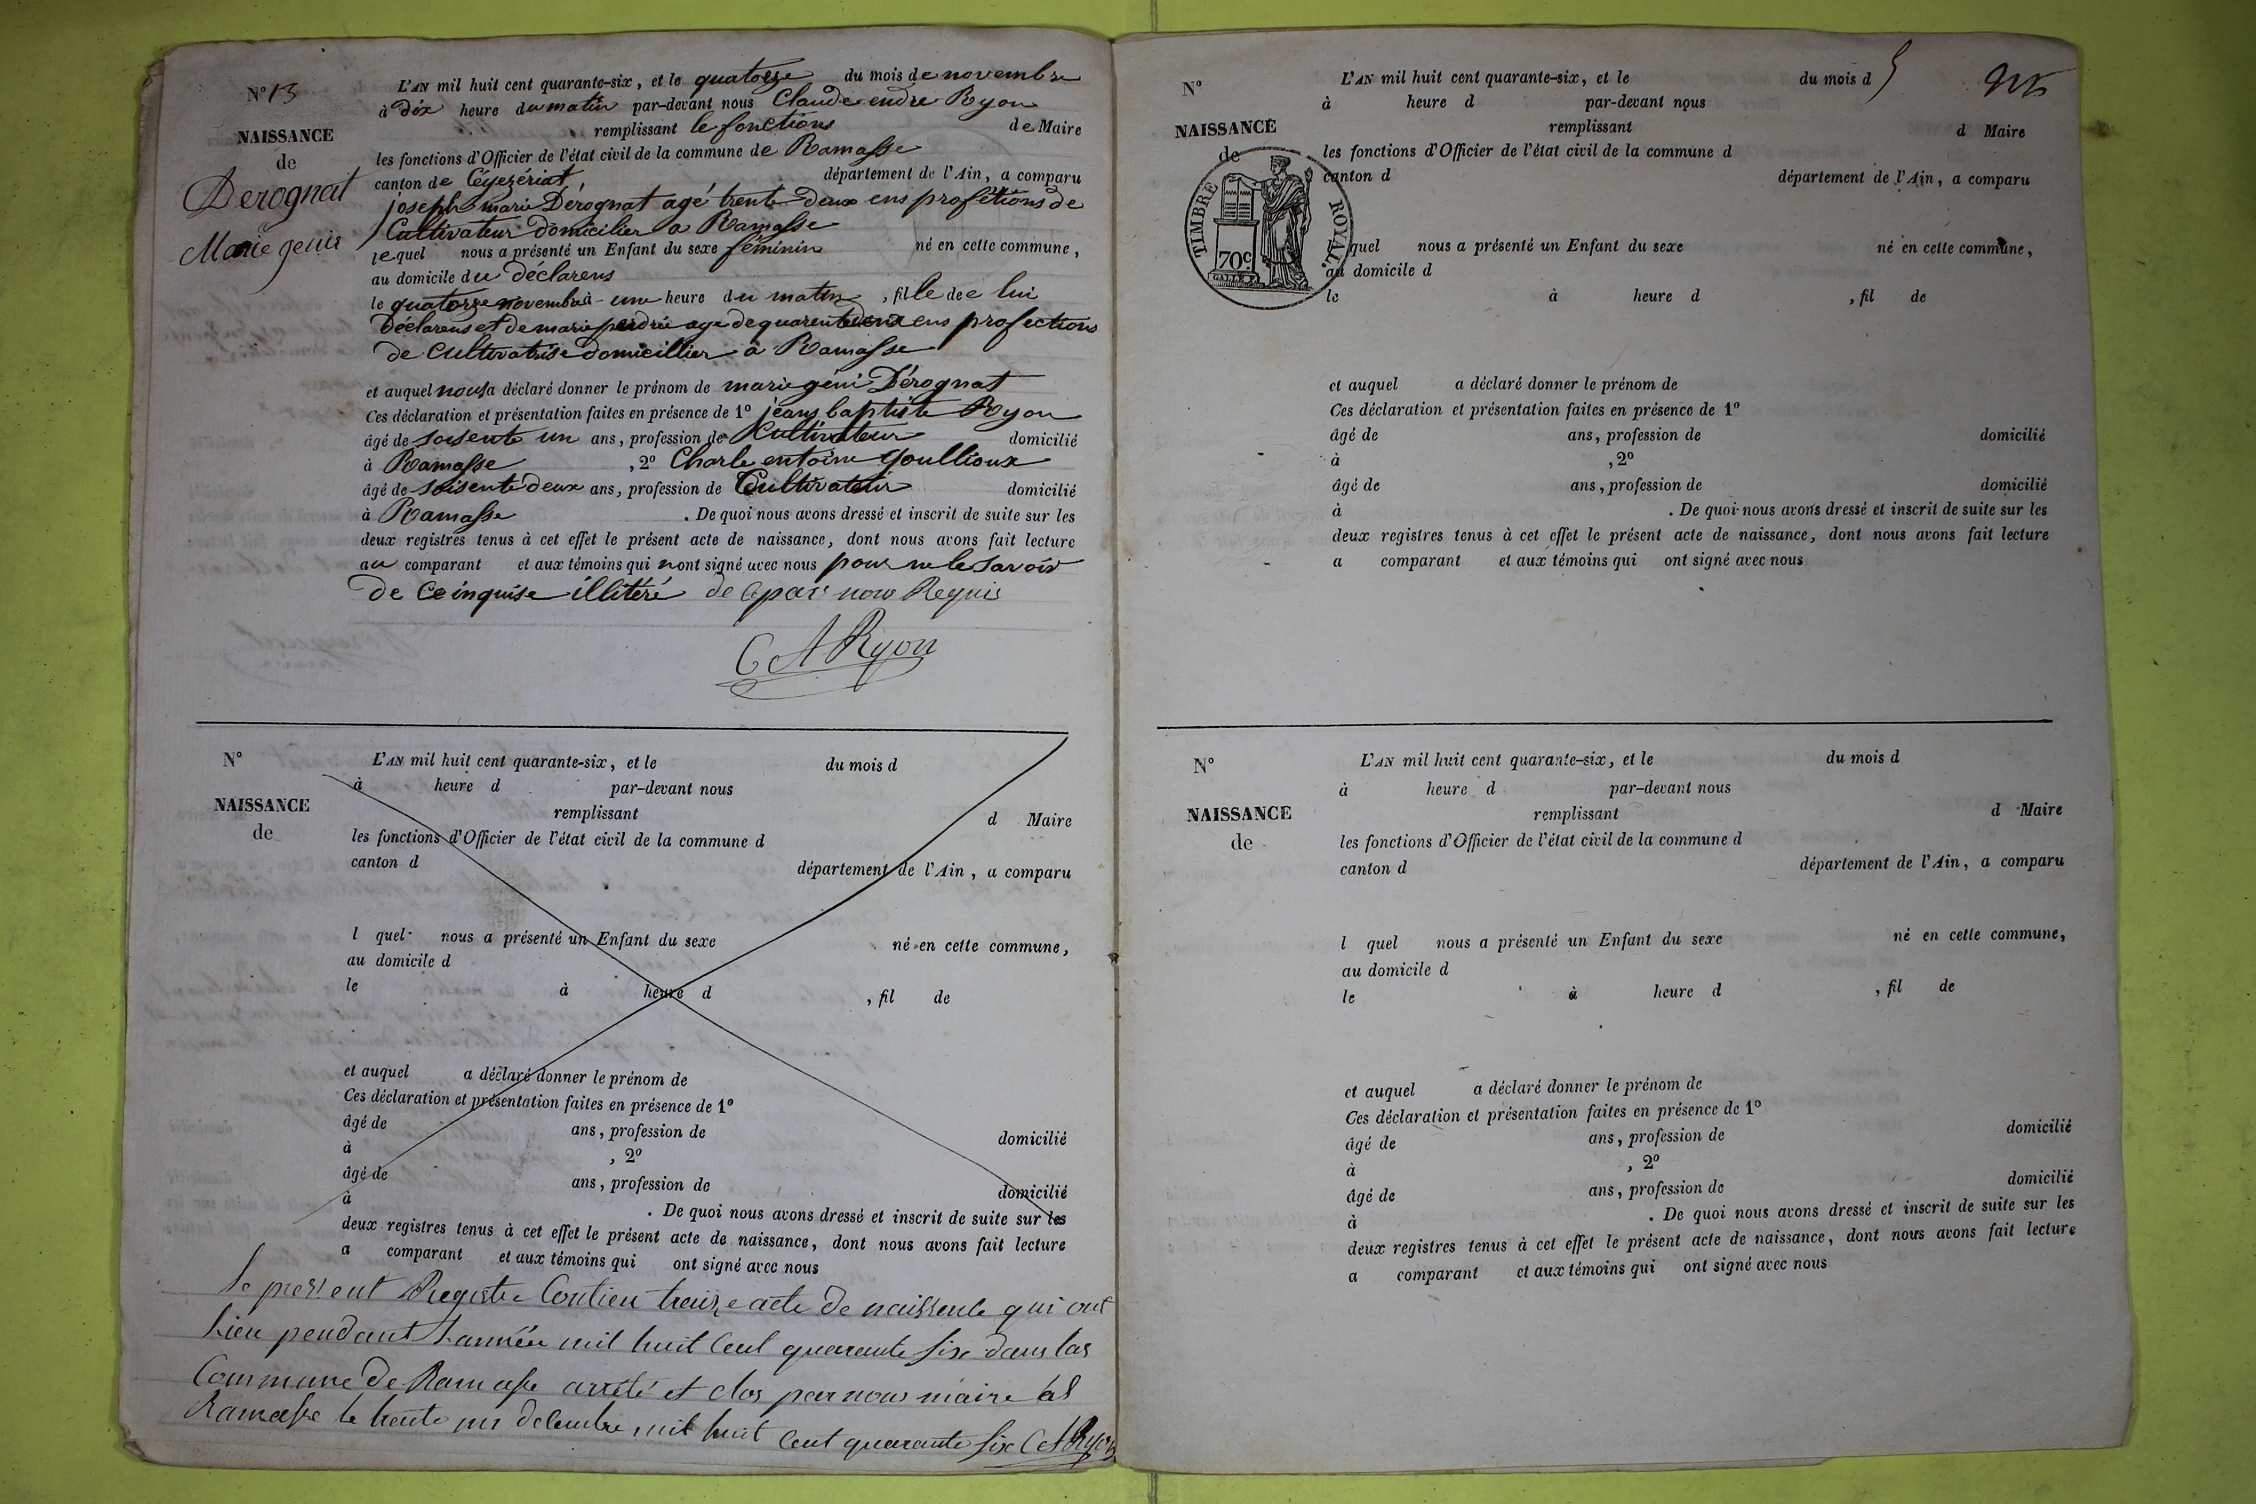 N° 13
NAISSANCE
de
Derognat
Marie geni
L'AN mil huit cent quarante-six, et le quatorze du mois de novembre
à dix heure du matin par-devant nous Claude endre Ryon
remplissant le fonctions de Maire
les fonctions d'Officier de l'état civil de la commune de Ramasse
canton de Céyzériat, département de l'Ain, a comparu
joseph marie Dérognat agé trente deux ens profétions de
Cultivateur domicilier a Ramasse
lequel nous a présenté un Enfant du sexe féminin né en cette commune,
au domicile du déclarens
le quatorze novembre à une heure du matin, fille de e lui
Déclarens et de marie perdrie age de quarente deux ens profections
de Cultivatrise domicillier a Ramasse
et auquel nous a déclaré donner le prénom de marie géni Dérognat
Ces déclaration et présentation faites en présence de 1° jeans baptiste Ryon
âgé de soisente un ans, profession de Cultivateur domicilié
à Ramasse, 2° Charle entoine Goullioux
âgé de soisente deux ans, profession de Cultivateur domicilié
à Ramasse. De quoi nous avons dressé et inscrit de suite sur les
deux registres tenus à cet effet le présent acte de naissance, dont nous avons fait lecture
au comparant et aux témoins qui nont signé avec nous pour ne le savoir
de ce inquise illitéré de ce par nous Requis
C A Ryon
N°
NAISSANCE
de
L'AN mil huit cent quarante-six, et le du mois d
à heure d par-devant nous
remplissant d Maire
les fonctions d'Officier de l'état civil de la commune d
canton d département de l'Ain, a comparu
l quel nous a présenté un Enfant du sexe né en cette commune,
au domicile d
le à heure d , fil de
et auquel a déclaré donner le prénom de
Ces déclaration et présentation faites en présence de 1°
âgé de ans, profession de domicilié
à , 2°
âgé de ans, profession de domicilié
à . De quoi nous avons dressé et inscrit de suite sur les
deux registres tenus à cet effet le présent acte de naissance, dont nous avons fait lecture
a comparant et aux témoins qui ont signé avec nous
le present Registre Contien treize acte de naissence qui ont
lieu pendant l'année mil huit Cent quarante six dans las
Commune de Ramasse arrêté et clos par nous maire
Ramasse le trente un décembre mil huit Cent quarante six C A Ryon
N°
NAISSANCE
de
TIMBRE ROYAL
70c
L'AN mil huit cent quarante-six, et le du mois d
à heure d par-devant nous
remplissant d Maire
les fonctions d'Officier de l'état civil de la commune d
canton d département de l'Ain, a comparu
l quel nous a présenté un Enfant du sexe né en cette commune,
au domicile d
le à heure d , fil de
et auquel a déclaré donner le prénom de
Ces déclaration et présentation faites en présence de 1°
âgé de ans, profession de domicilié
à , 2°
âgé de ans, profession de domicilié
à . De quoi nous avons dressé et inscrit de suite sur les
deux registres tenus à cet effet le présent acte de naissance, dont nous avons fait lecture
a comparant et aux témoins qui ont signé avec nous
N°
NAISSANCE
de
L'AN mil huit cent quarante-six, et le du mois d
à heure d par-devant nous
remplissant d Maire
les fonctions d'Officier de l'état civil de la commune d
canton d département de l'Ain, a comparu
l quel nous a présenté un Enfant du sexe né en cette commune,
au domicile d
le à heure d , fil de
et auquel a déclaré donner le prénom de
Ces déclaration et présentation faites en présence de 1°
âgé de ans, profession de domicilié
à , 2°
âgé de ans, profession de domicilié
à . De quoi nous avons dressé et inscrit de suite sur les
deux registres tenus à cet effet le présent acte de naissance, dont nous avons fait lecture
a comparant et aux témoins qui ont signé avec nous